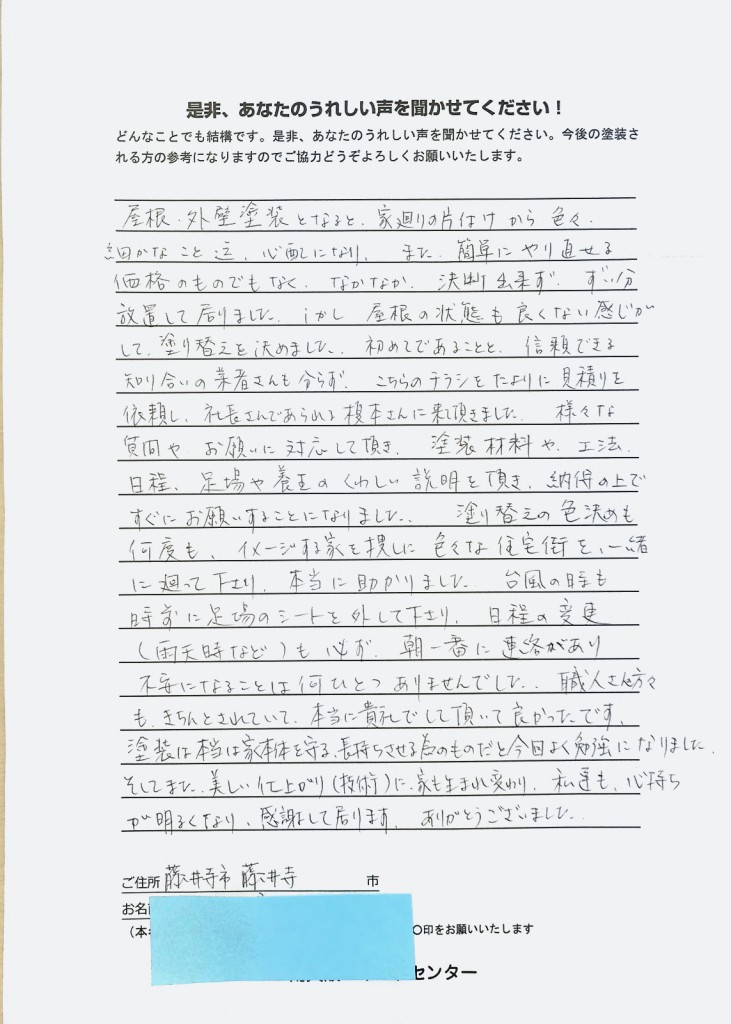 是非、あなたのうれしい声を聞かせてください！
どんなことでも結構です。是非、あなたのうれしい声を聞かせてください。今後の塗装さ
れる方の参考になりますのでご協力どうぞよろしくお願いいたします。
屋根・外壁塗装となると、家廻りの片付けから色々、
細かなこと迄、心配になり、また、簡単にやり直せる
価格のものでもなく、なかなか、決断出来ず、ずい分
放置して居りました。しかし 屋根の状態も良くない感じが
して、塗り替えを決めました。初めてであることと、信頼できる
知り合いの業者さんも分らず、こちらのチラシをたよりに見積りを
依頼し、社長さんであられる榎本さんに来て頂きました。様々な
質問や、お願いに対応して頂き、塗装材料や、工法、
日程、足場や養生のくわしい説明を頂き、納得の上で
すぐにお願いすることになりました。塗り替えの色決めも
何度も、イメージする家を捜しに色々な住宅街を、一緒
に廻って下さり、本当に助かりました。台風の時も
時前に足場のシートを外して下さり、日程の変更
（雨天時など）も必ず、朝一番に連絡があり
不安になることは何ひとつありませんでした。職人さん方々
も、きちんとされていて、本当に貴社でして頂いて良かったです。
塗装は本当は家本体を守る、長持ちさせる為のものだと今回よく勉強になりました。
そしてまた、美しい仕上がり（技術）に、家も生まれ変わり、私達も、心持ち
が明るくなり、感謝して居ります。ありがとうございました。
ご住所 藤井寺市 藤井寺 市
お名前
（本 〇印をお願いいたします
センター